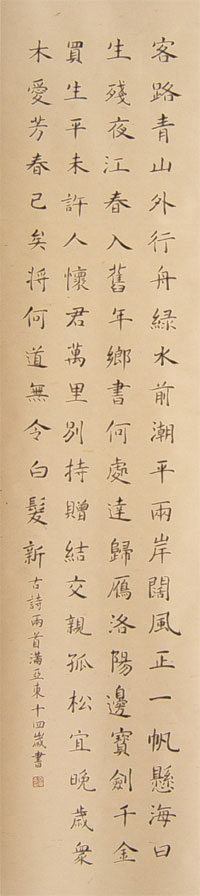 客路青山外行舟綠水前潮平兩岸闊風正一帆懸海日
生殘夜江春入舊年鄉書何處達歸雁洛陽邊寶劍千金
買生平未許人懷君萬里別持贈結交親孤松宜晚歲衆
木愛芳春已矣將何道無令白髮新
古詩兩首滿亞東十四歲書